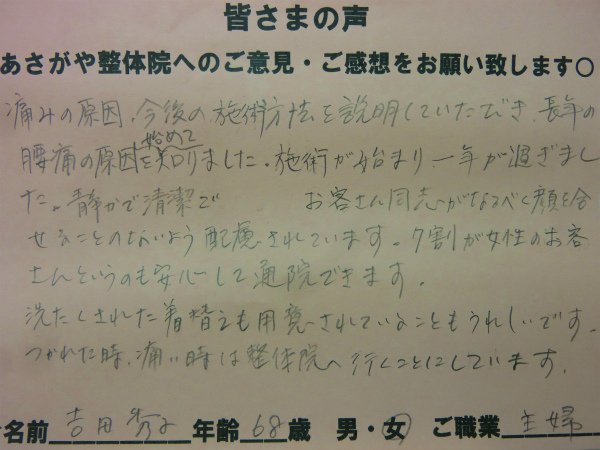 皆さまの声
あさがや整体院へのご意見・ご感想をお願い致します○
痛みの原因、今後の施術方法を説明していただき、長年の
腰痛の原因を始めて知りました。施術が始まり、一年が過ぎまし
た。静かで清潔で お客さん同志がなるべく顔を合
せることのないよう配慮されています。7割が女性のお客
さんというのも安心して通院できます。
洗たくされた着替えも用意されていることもうれしいです。
つかれた時、痛い時は整体院へ行くことにしています。
名前 吉田秀子 年齢 68 歳 男・女 ご職業 主婦